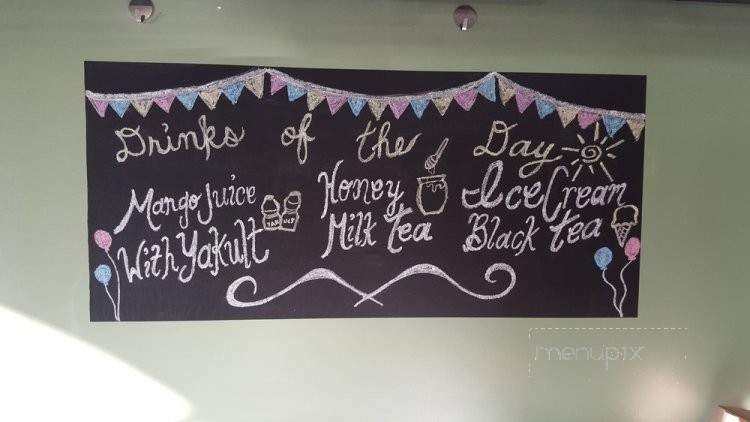 Drinks of the Day
Mango Juice
With Yakult
Honey
Milk tea
Ice Cream
Black tea
menupix